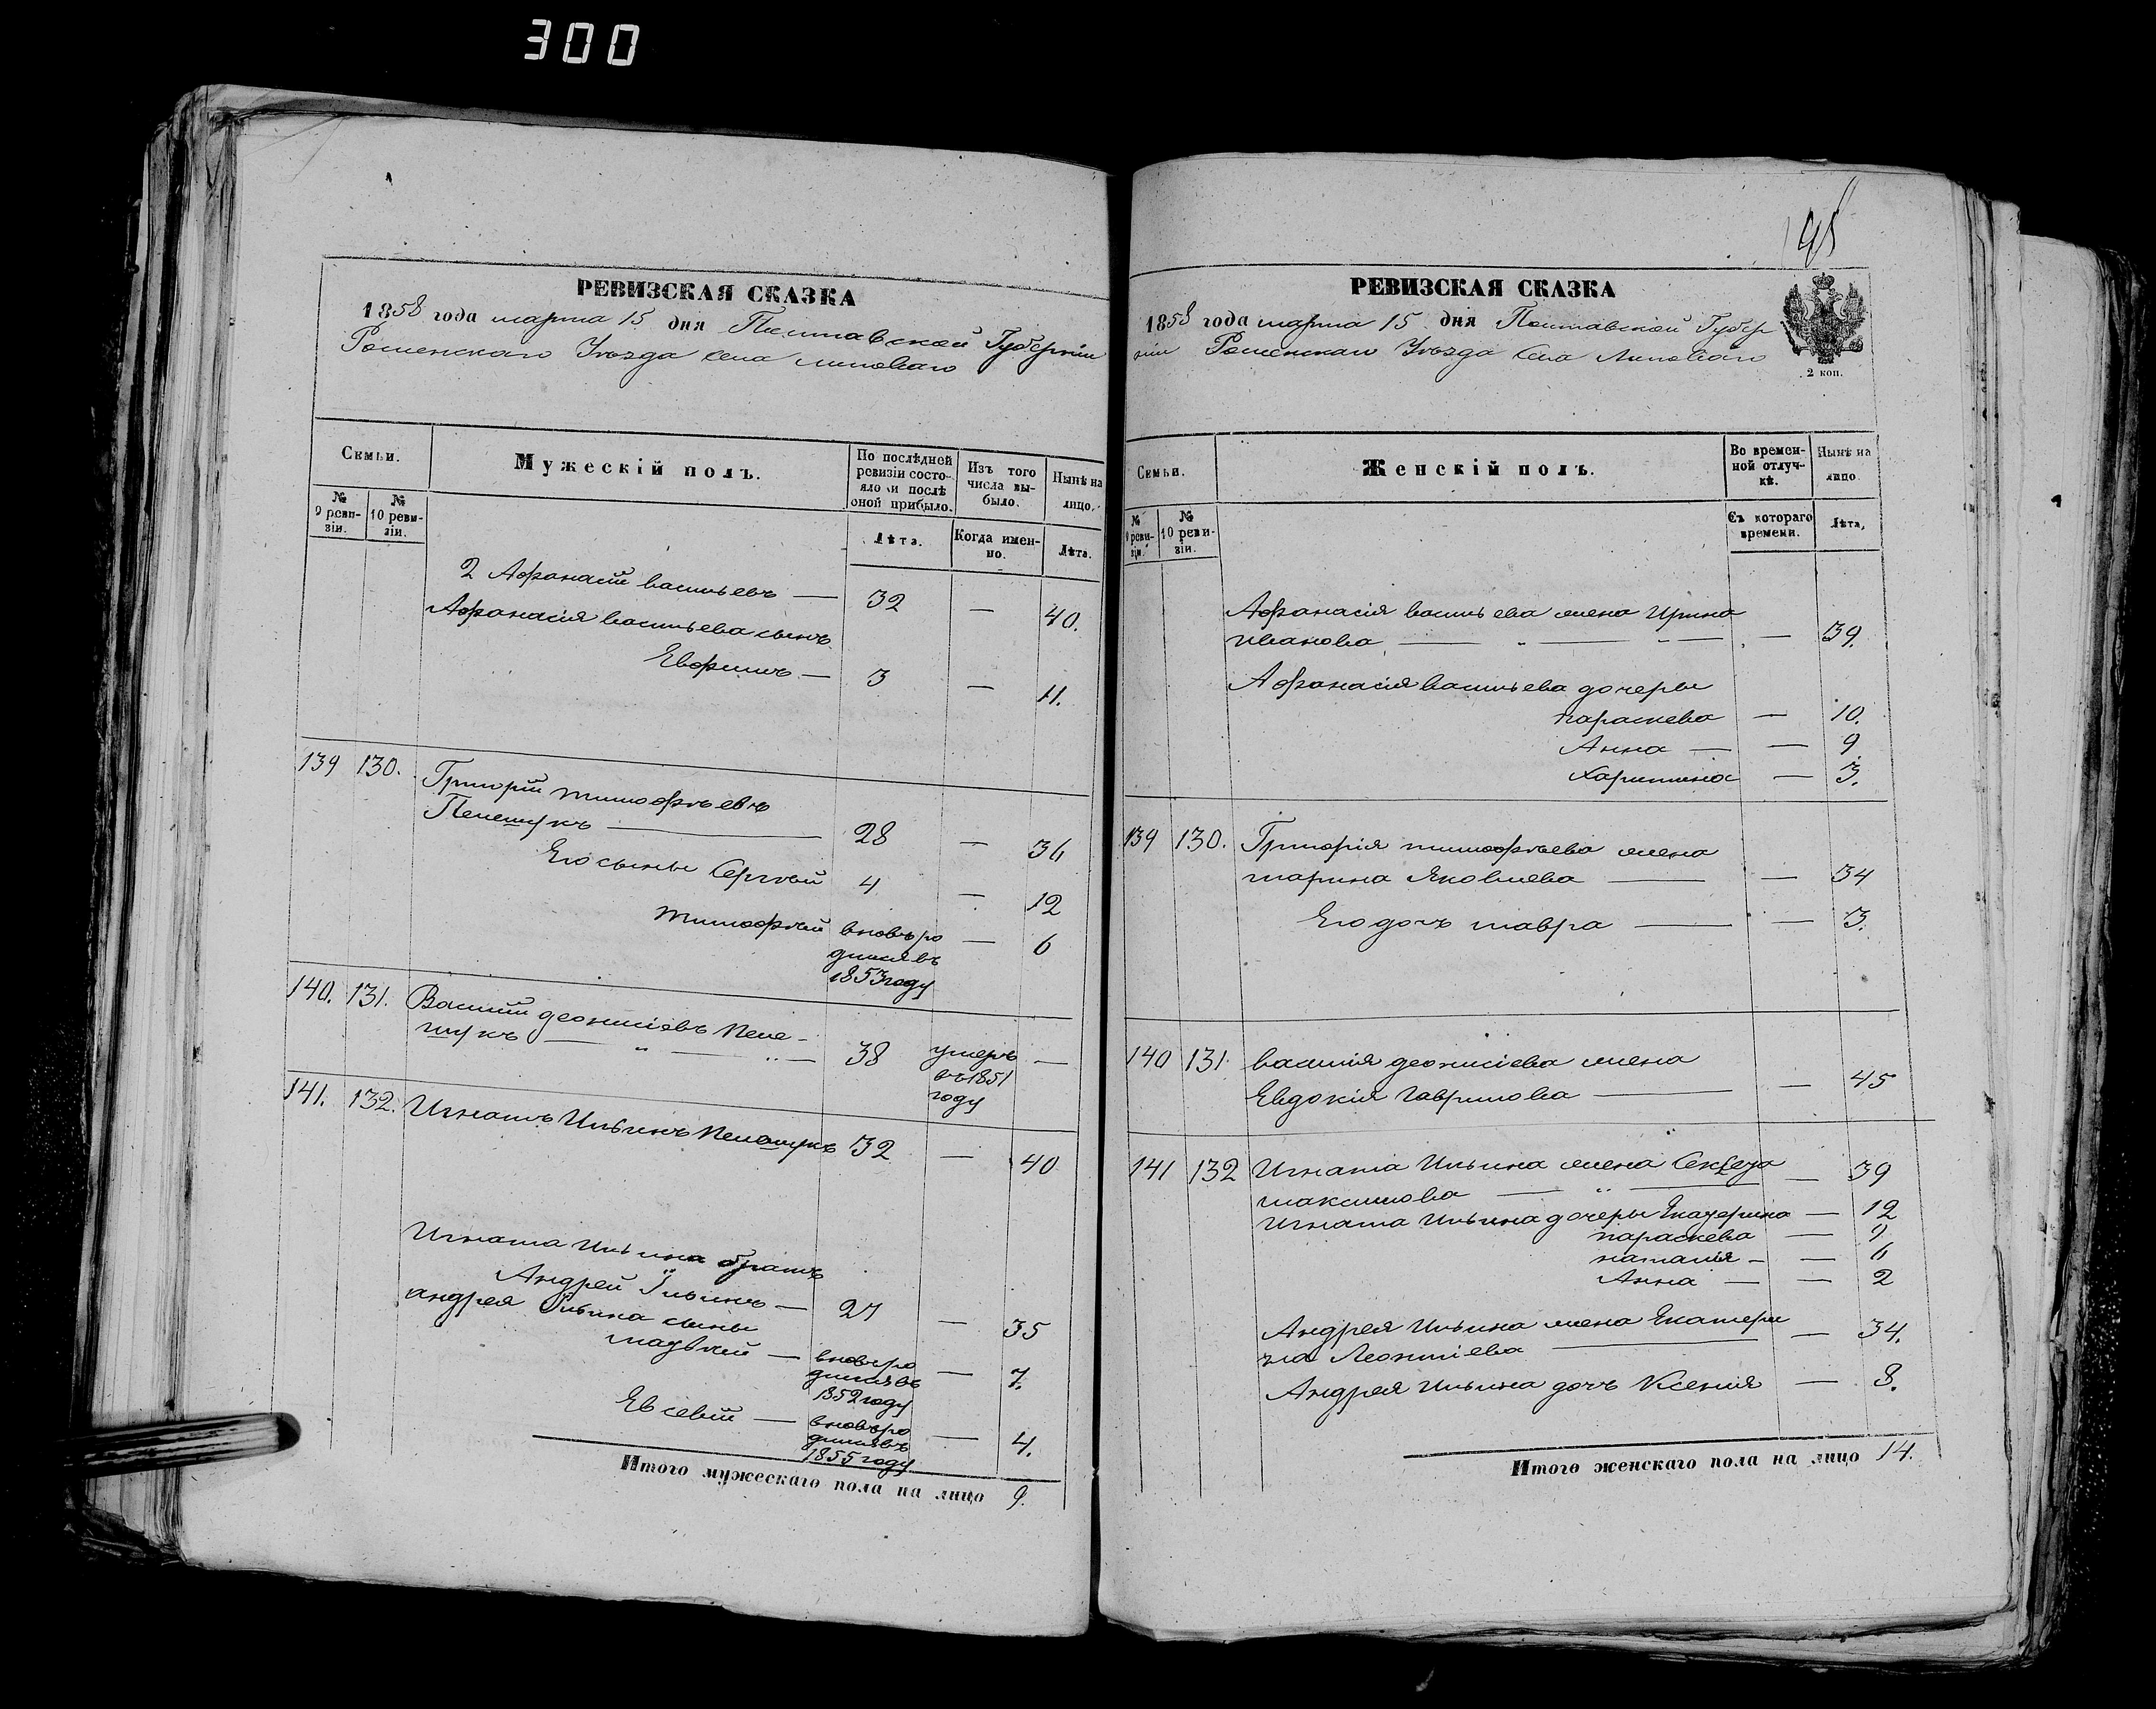 300
РЕВИЗСКАЯ СКАЗКА
1858 года марта 15 дня Полтавской Губерніи
Роменскаго Уѣзда села Липоваго
Семьи.
№ 9 ревизіи.
№ 10 ревизіи.
Мужескій полъ.
По послѣдней ревизіи состояло и послѣ оной прибыло.
Лѣта.
Изъ того числа выбыло.
Когда именно.
Нынѣ на лицо.
Лѣта.
2 Афанасій васильевъ — 32 — 40.
Афанасія васильева сынъ
Евфимъ — 3 — 11.
139 130. Григорій тимофѣевъ
Пелешукъ — 28 — 36
Его сыны Сергѣй 4 — 12
тимофѣй вновь ро — 6
дился въ
1853 году
140. 131. Василій деонисіевъ Пеле-
шукъ — " — " — 38 умеръ —
въ 1851
году
141. 132. Игнатъ Ильинъ Пелешукъ 32 — 40
Игната Ильина братъ
Андрей Ильинъ — 27 — 35
андрея Ильина сыны
матвѣй — вновь ро — 7.
дился въ
1852 году
Евсевій — вновь ро — 4.
дился въ
1855 году
Итого мужескаго пола на лицо 9.
РЕВИЗСКАЯ СКАЗКА
1858 года марта 15 дня Полтавской Губер
ніи Роменскаго Уѣзда Села Липоваго
2 коп.
Семьи.
№ 9 ревизіи.
№ 10 ревизіи.
Женскій полъ.
Во временной отлучкѣ.
Съ котораго времени.
Нынѣ на лицо
Лѣта,
Афанасія васильева жена Ирина
иванова — " — " — — 39.
Афанасія васильева дочеры
параскева — 10.
Анна — — 9
Харитина — 3.
139 130. Григорія тимофѣева жена
марина Яковлева — — 34
Его дочъ мавра — — 3.
140 131 василія деонисіева жена
Евдокія гаврилова — — 45
141 132 Игната Ильина жена — 39
максимова — " —
Игната Ильина дочеры Екатерина — 12
параскева — 9
наталія — — 6
Анна — — 2
Андрея Ильина жена Екатери — 34.
на Леонтіева —
Андрея Ильина дочъ Ксенія — 8.
Итого женскаго пола на лицо 14.